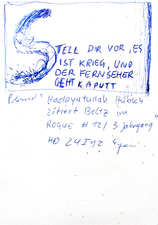 STELL DIR VOR, ES
IST KRIEG, UND
DER FERNSEHER
GEHT KAPUTT
Hadayatullah Hübsch
zitiert Beltz im
Rogue # 12/ 3 Jahrgang
HD